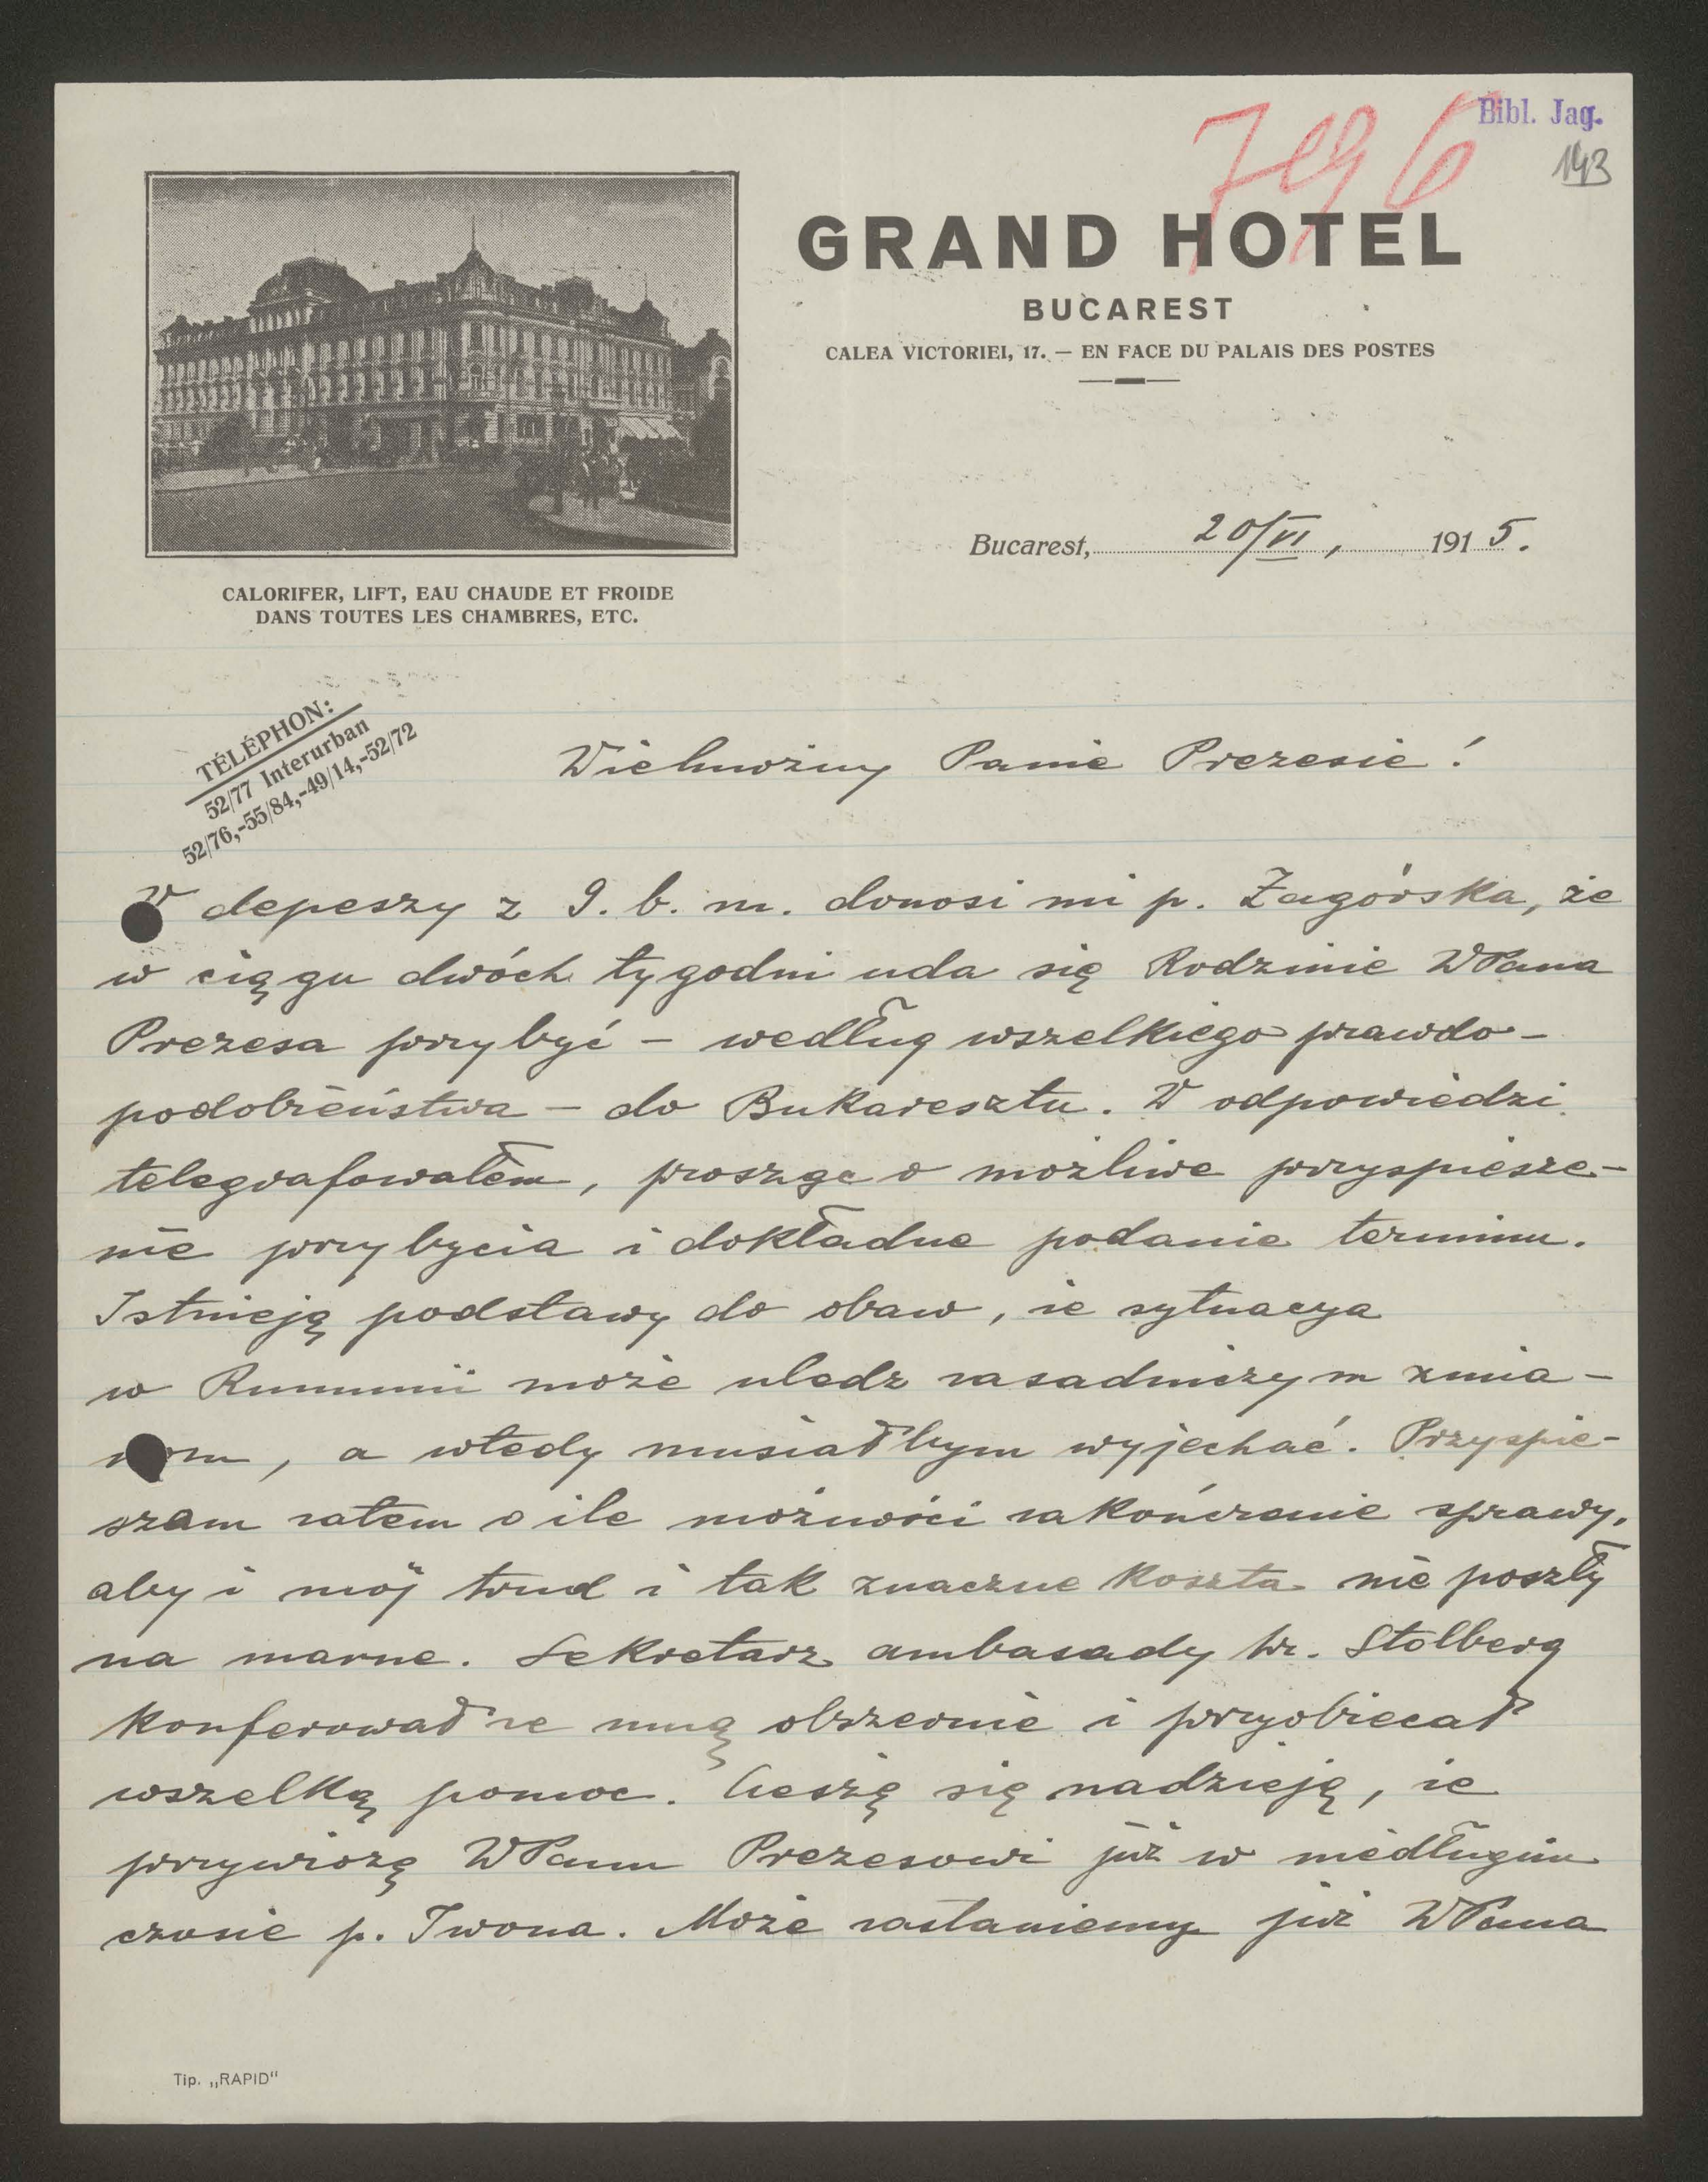 Bibl. Jag.
796
143
GRAND HOTEL
BUCAREST
CALEA VICTORIEI, 17. — EN FACE DU PALAIS DES POSTES
Bucarest, 20/VI, 1915.
CALORIFER, LIFT, EAU CHAUDE ET FROIDE
DANS TOUTES LES CHAMBRES, ETC.
TÉLÉPHON:
52/77 Interurban
52/76,-55/84,-49/14,-52/72
Wielmożny Panie Prezesie!
W depeszy z 9. b. m. donosi mi p. Zagórska, że
w ciągu dwóch tygodni uda się Rodzinie WPana
Prezesa przybyć – według wszelkiego prawdo-
podobieństwa – do Bukaresztu. W odpowiedzi
telegrafowałem, prosząc o możliwe przyspiesze-
nie przybycia i dokładne podanie terminu.
Istnieją podstawy do obaw, że sytuacya
w Rumunii może uledz zasadniczym zmia-
nom, a wtedy musiałbym wyjechać. Przyspie-
szam zatem o ile możności zakończenie sprawy,
aby i mój trud i tak znaczne koszta nie poszły
na marne. Sekretarz ambasady hr. Stolberg
konferował ze mną obszernie i przyobiecał
wszelką pomoc. Cieszę się nadzieją, że
przywiozę WPanu Prezesowi już w niedługim
czasie p. Iwona. Może zastaniemy już WPana
Tip. „RAPID"